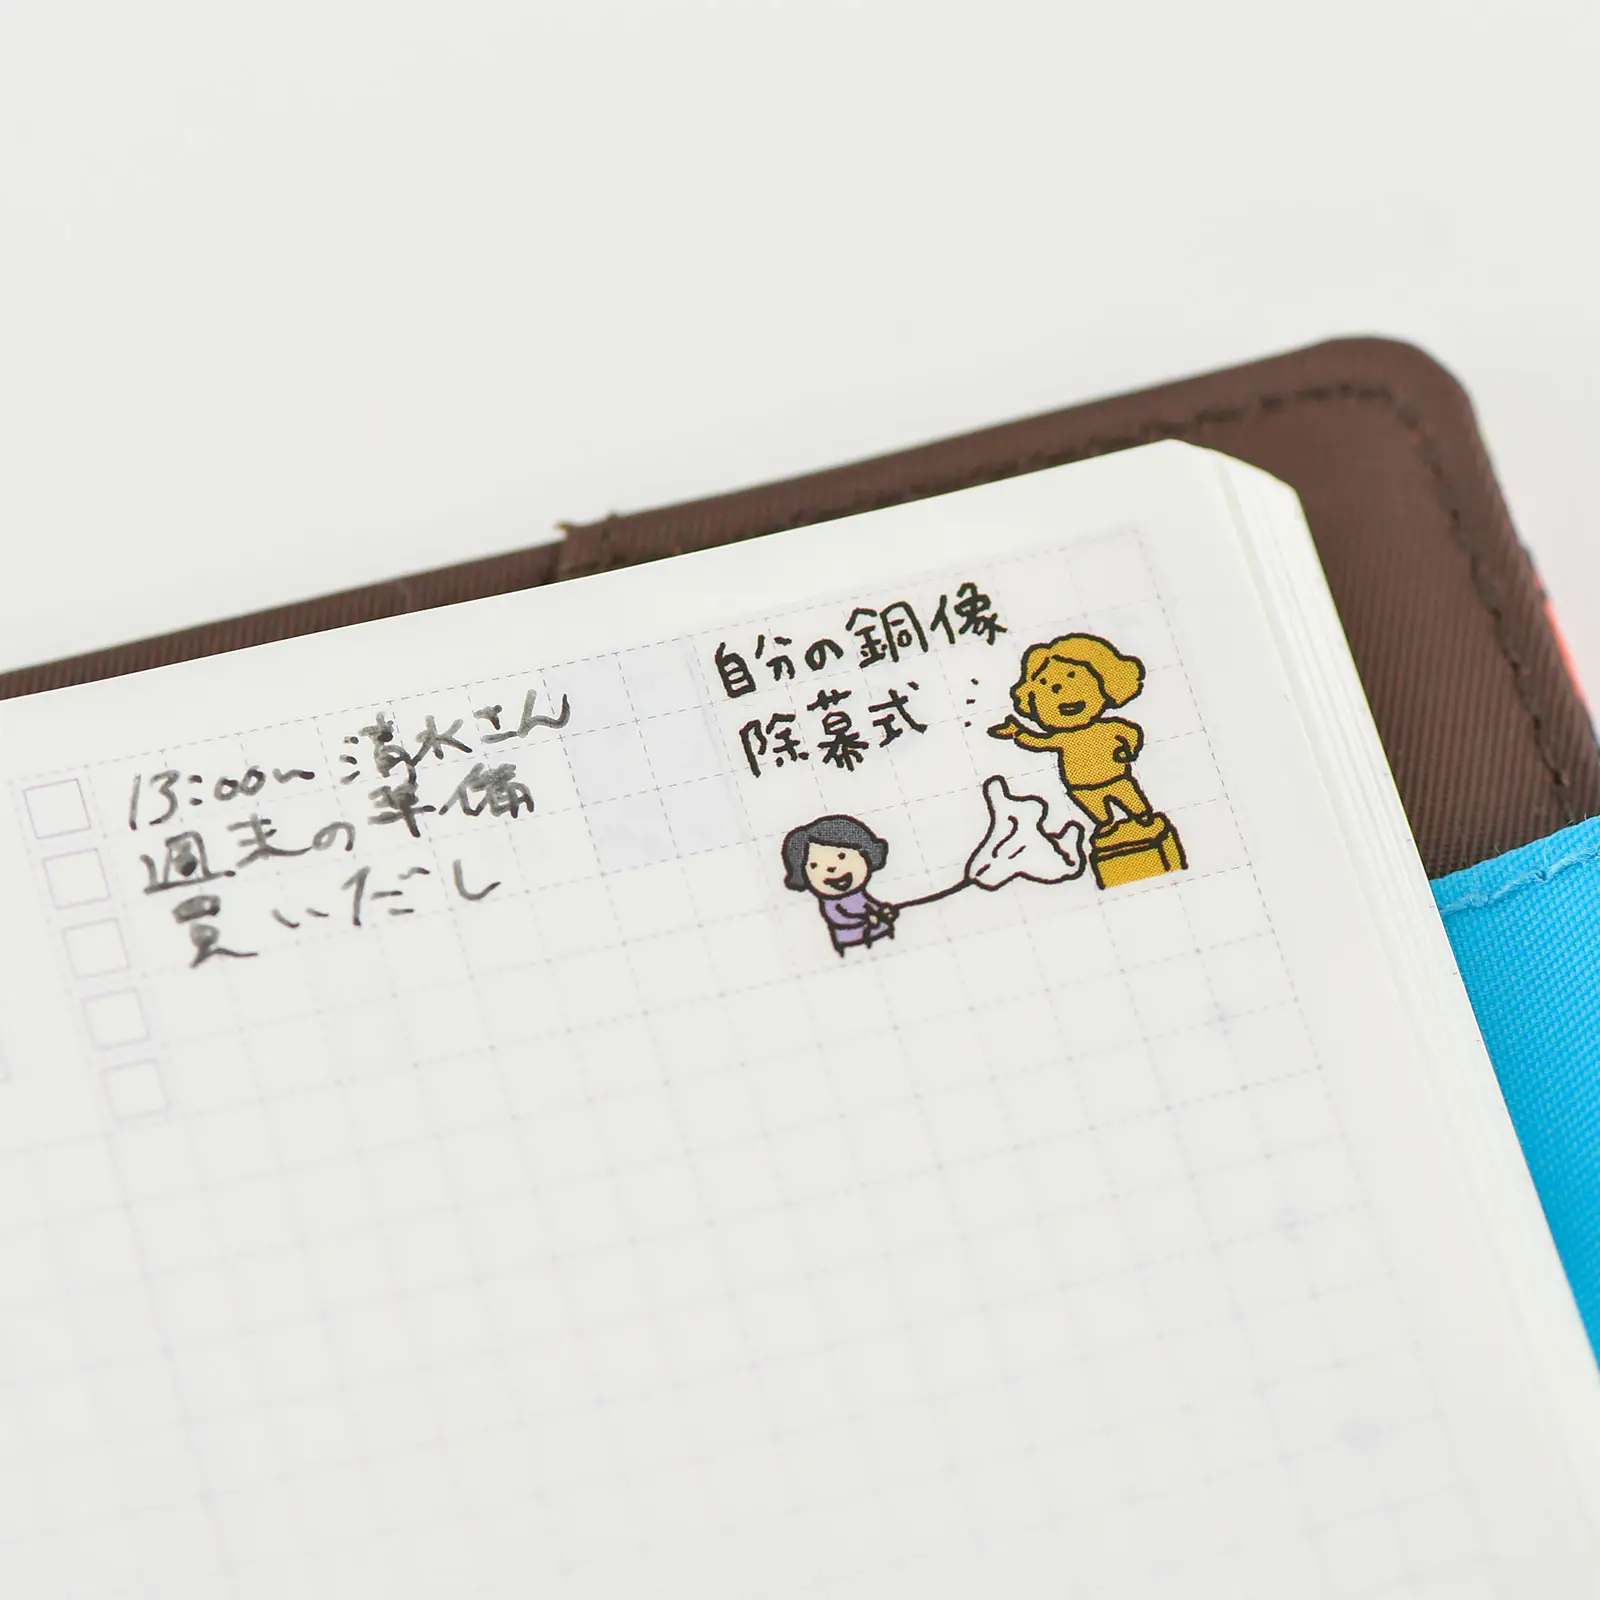 13:00〜 清水さん
週末の準備
買いだし
自分の銅像
除幕式